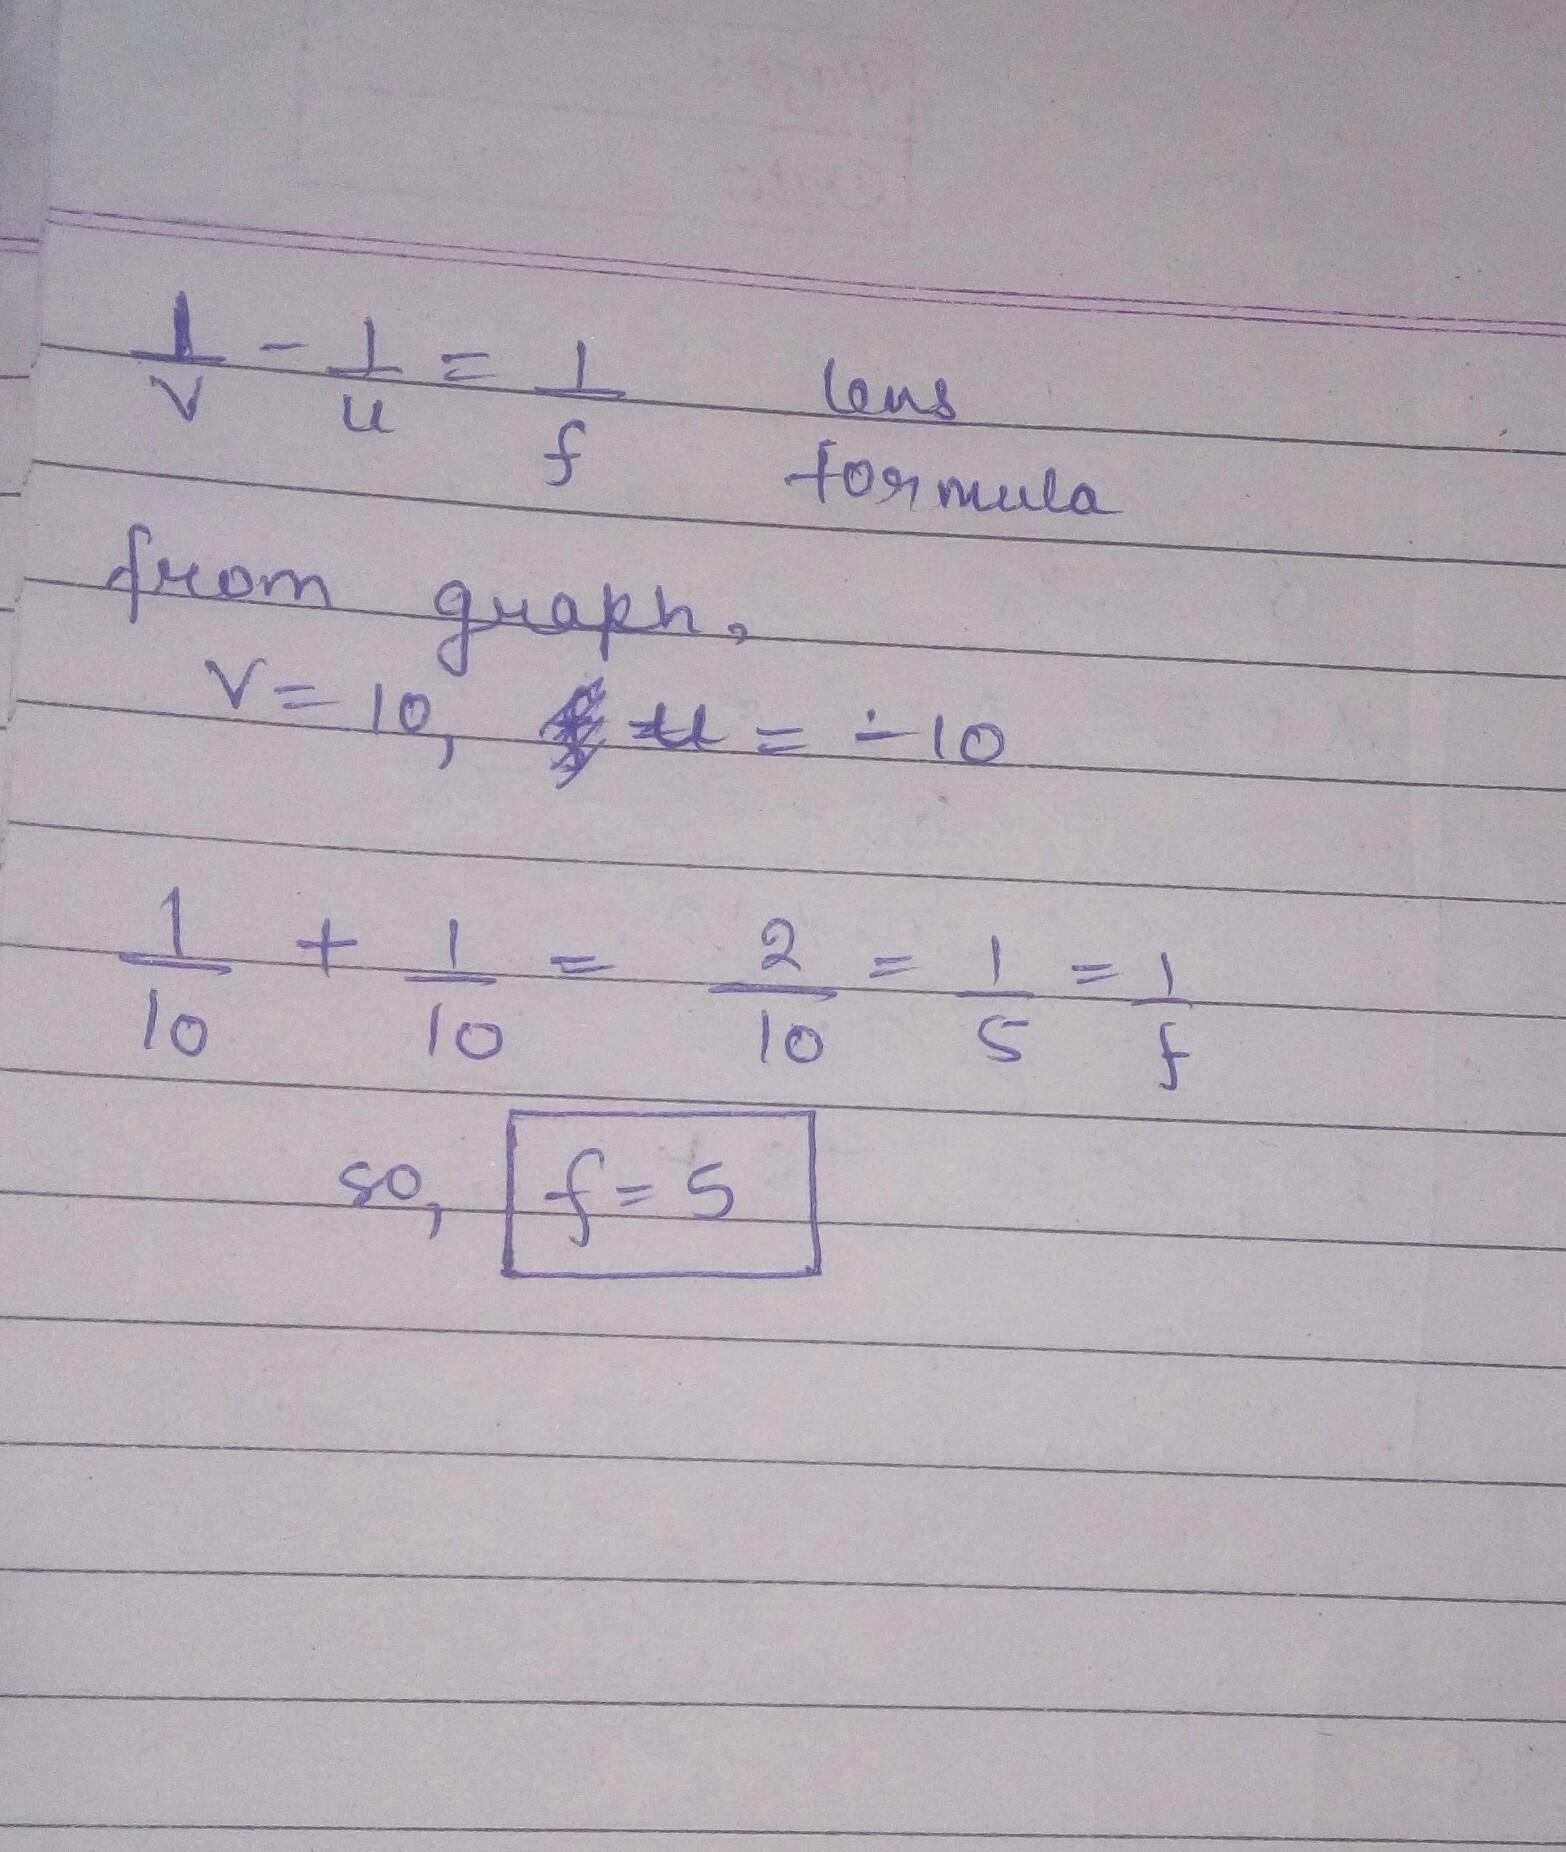 1/v - 1/u = 1/f lens
formula
from graph,
v = 10, u = -10
1/10 + 1/10 = 2/10 = 1/5 = 1/f
so, f = 5